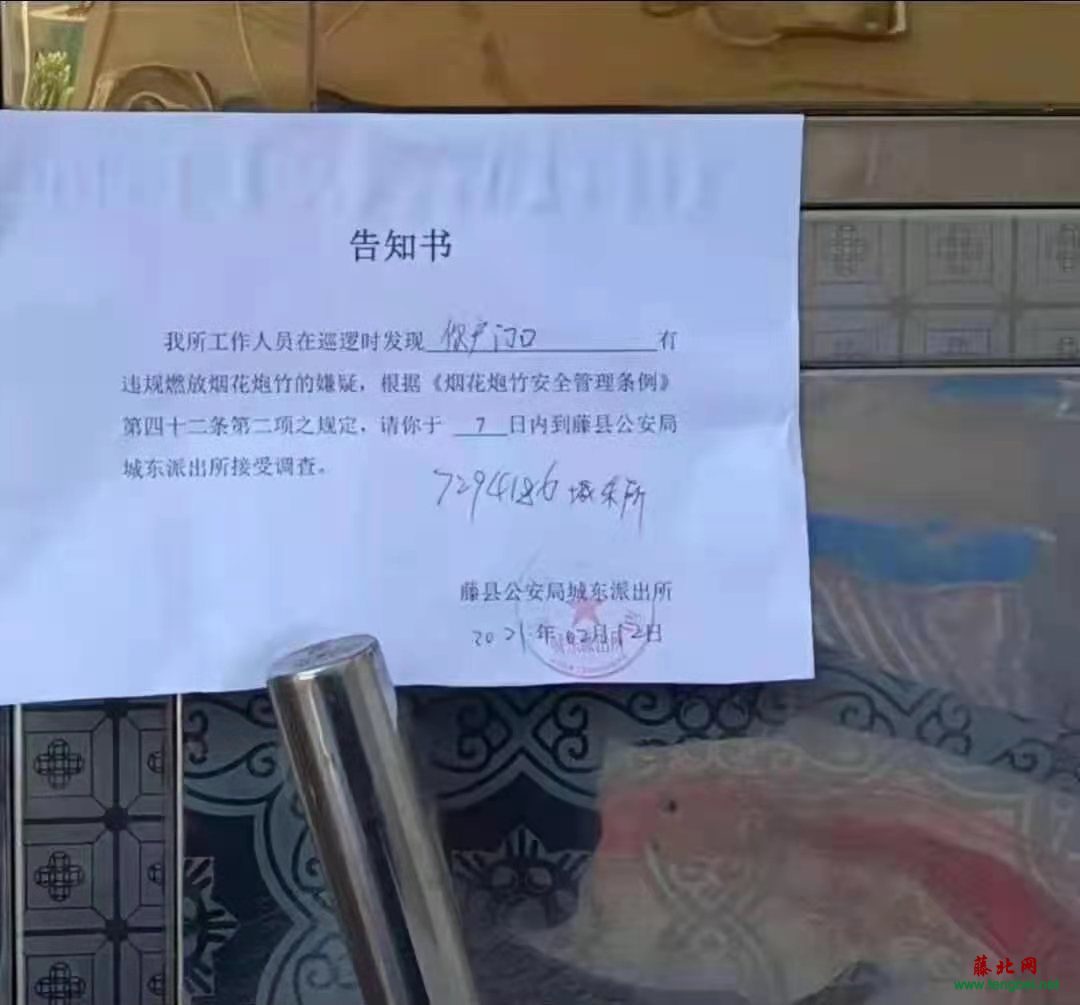 告知书
我所工作人员在巡逻时发现 你户门口 有
违规燃放烟花炮竹的嫌疑，根据《烟花炮竹安全管理条例》
第四十二条第二项之规定，请你于 7 日内到藤县公安局
城东派出所接受调查。
7294186 城东所
藤县公安局城东派出所
2021年02月12日
城东派出所
藤北网
www.tengbei.net